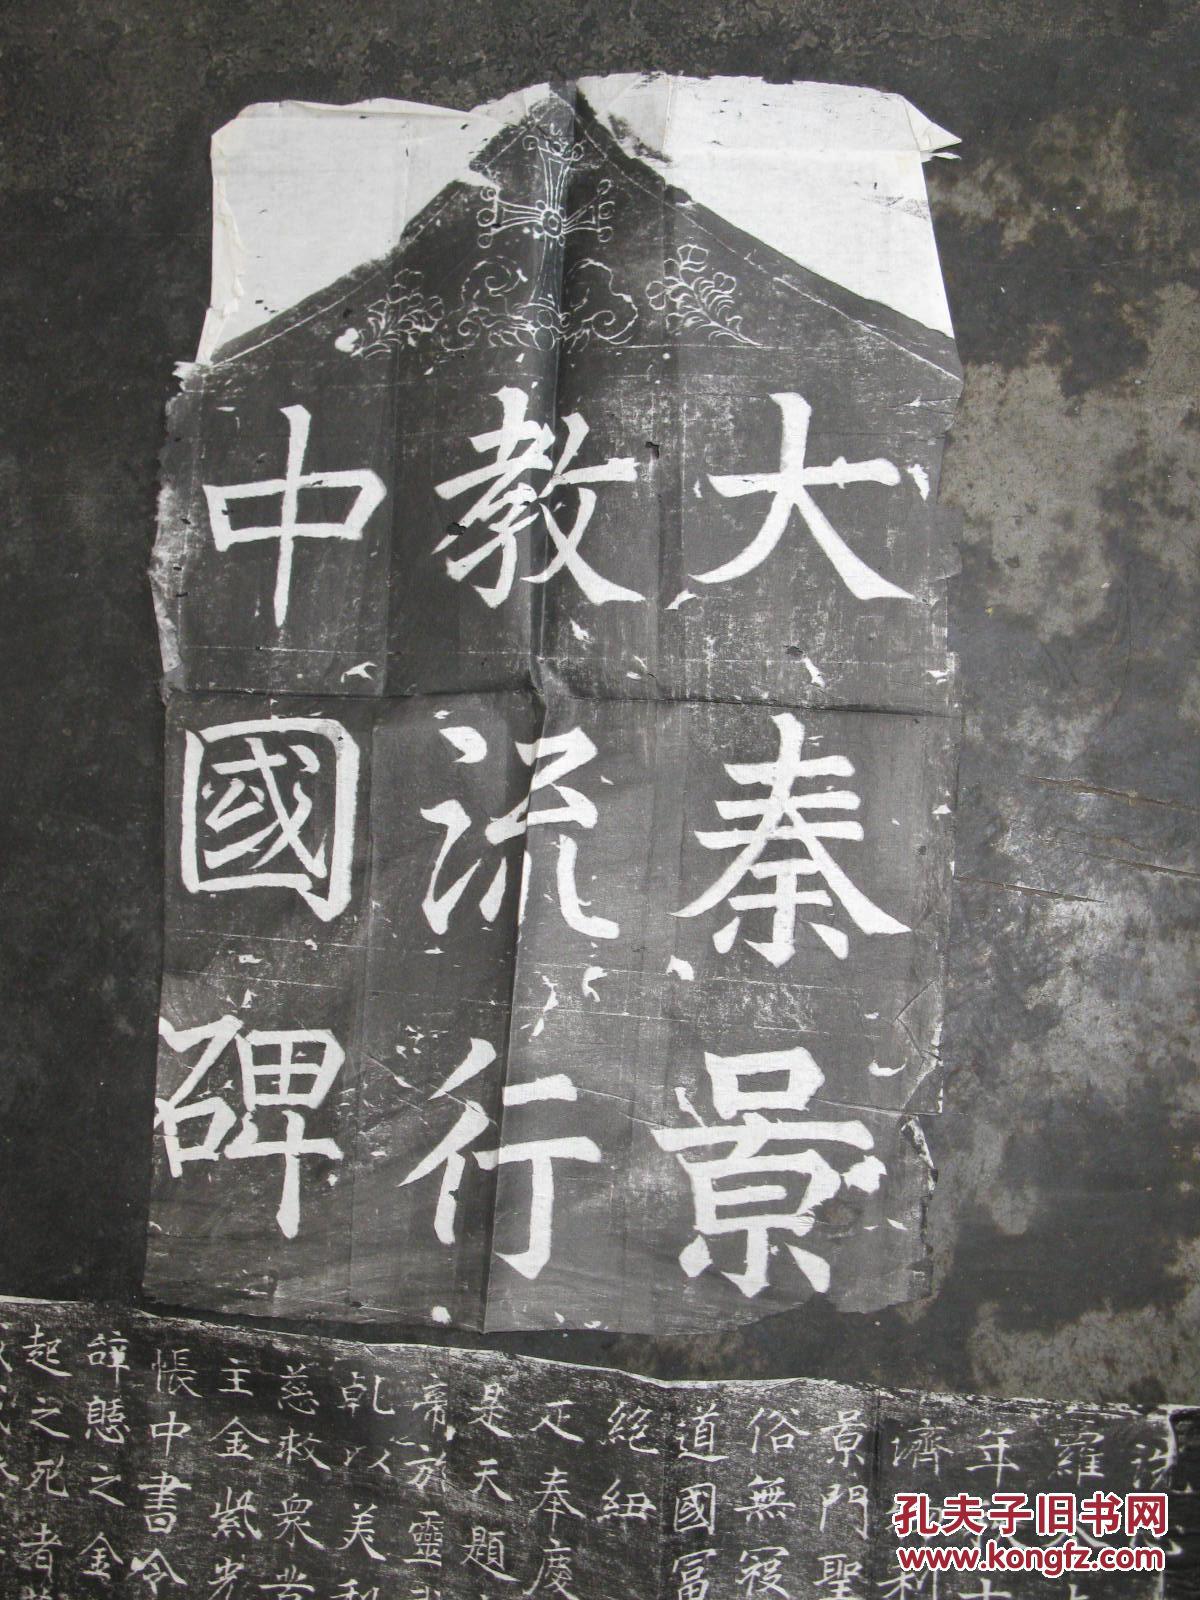 大秦景
教流行
中國碑
洗
羅
年
濟利
景門聖
俗無寇
道國富
絕紐
疋奉慶
是天題
帝於靈
乾以美利
慈救眾苦
主金紫光
悵中書令
辞懸之金
起之死者
孔夫子旧书网
www.kongfz.com